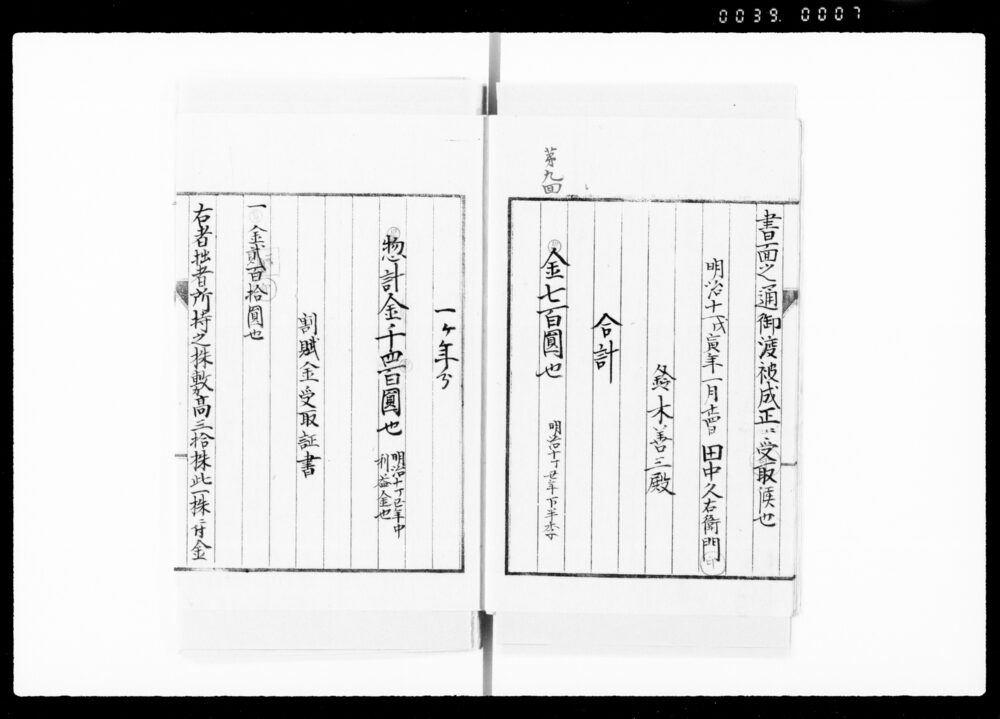 0039. 0007
書面之通御渡被成正ニ受取候也
明治十一戊寅年一月廿四日 田中久右衛門 印
鈴木善三殿
合計
第九回
金七百圓也 明治十丁丑年下半季分
一ヶ年分
惣計金千四百圓也 明治十丁丑年中
利益金也
割賦金受取証書
一金貳百拾圓也
右者拙者所持之株敷高三拾株此一株ニ付金